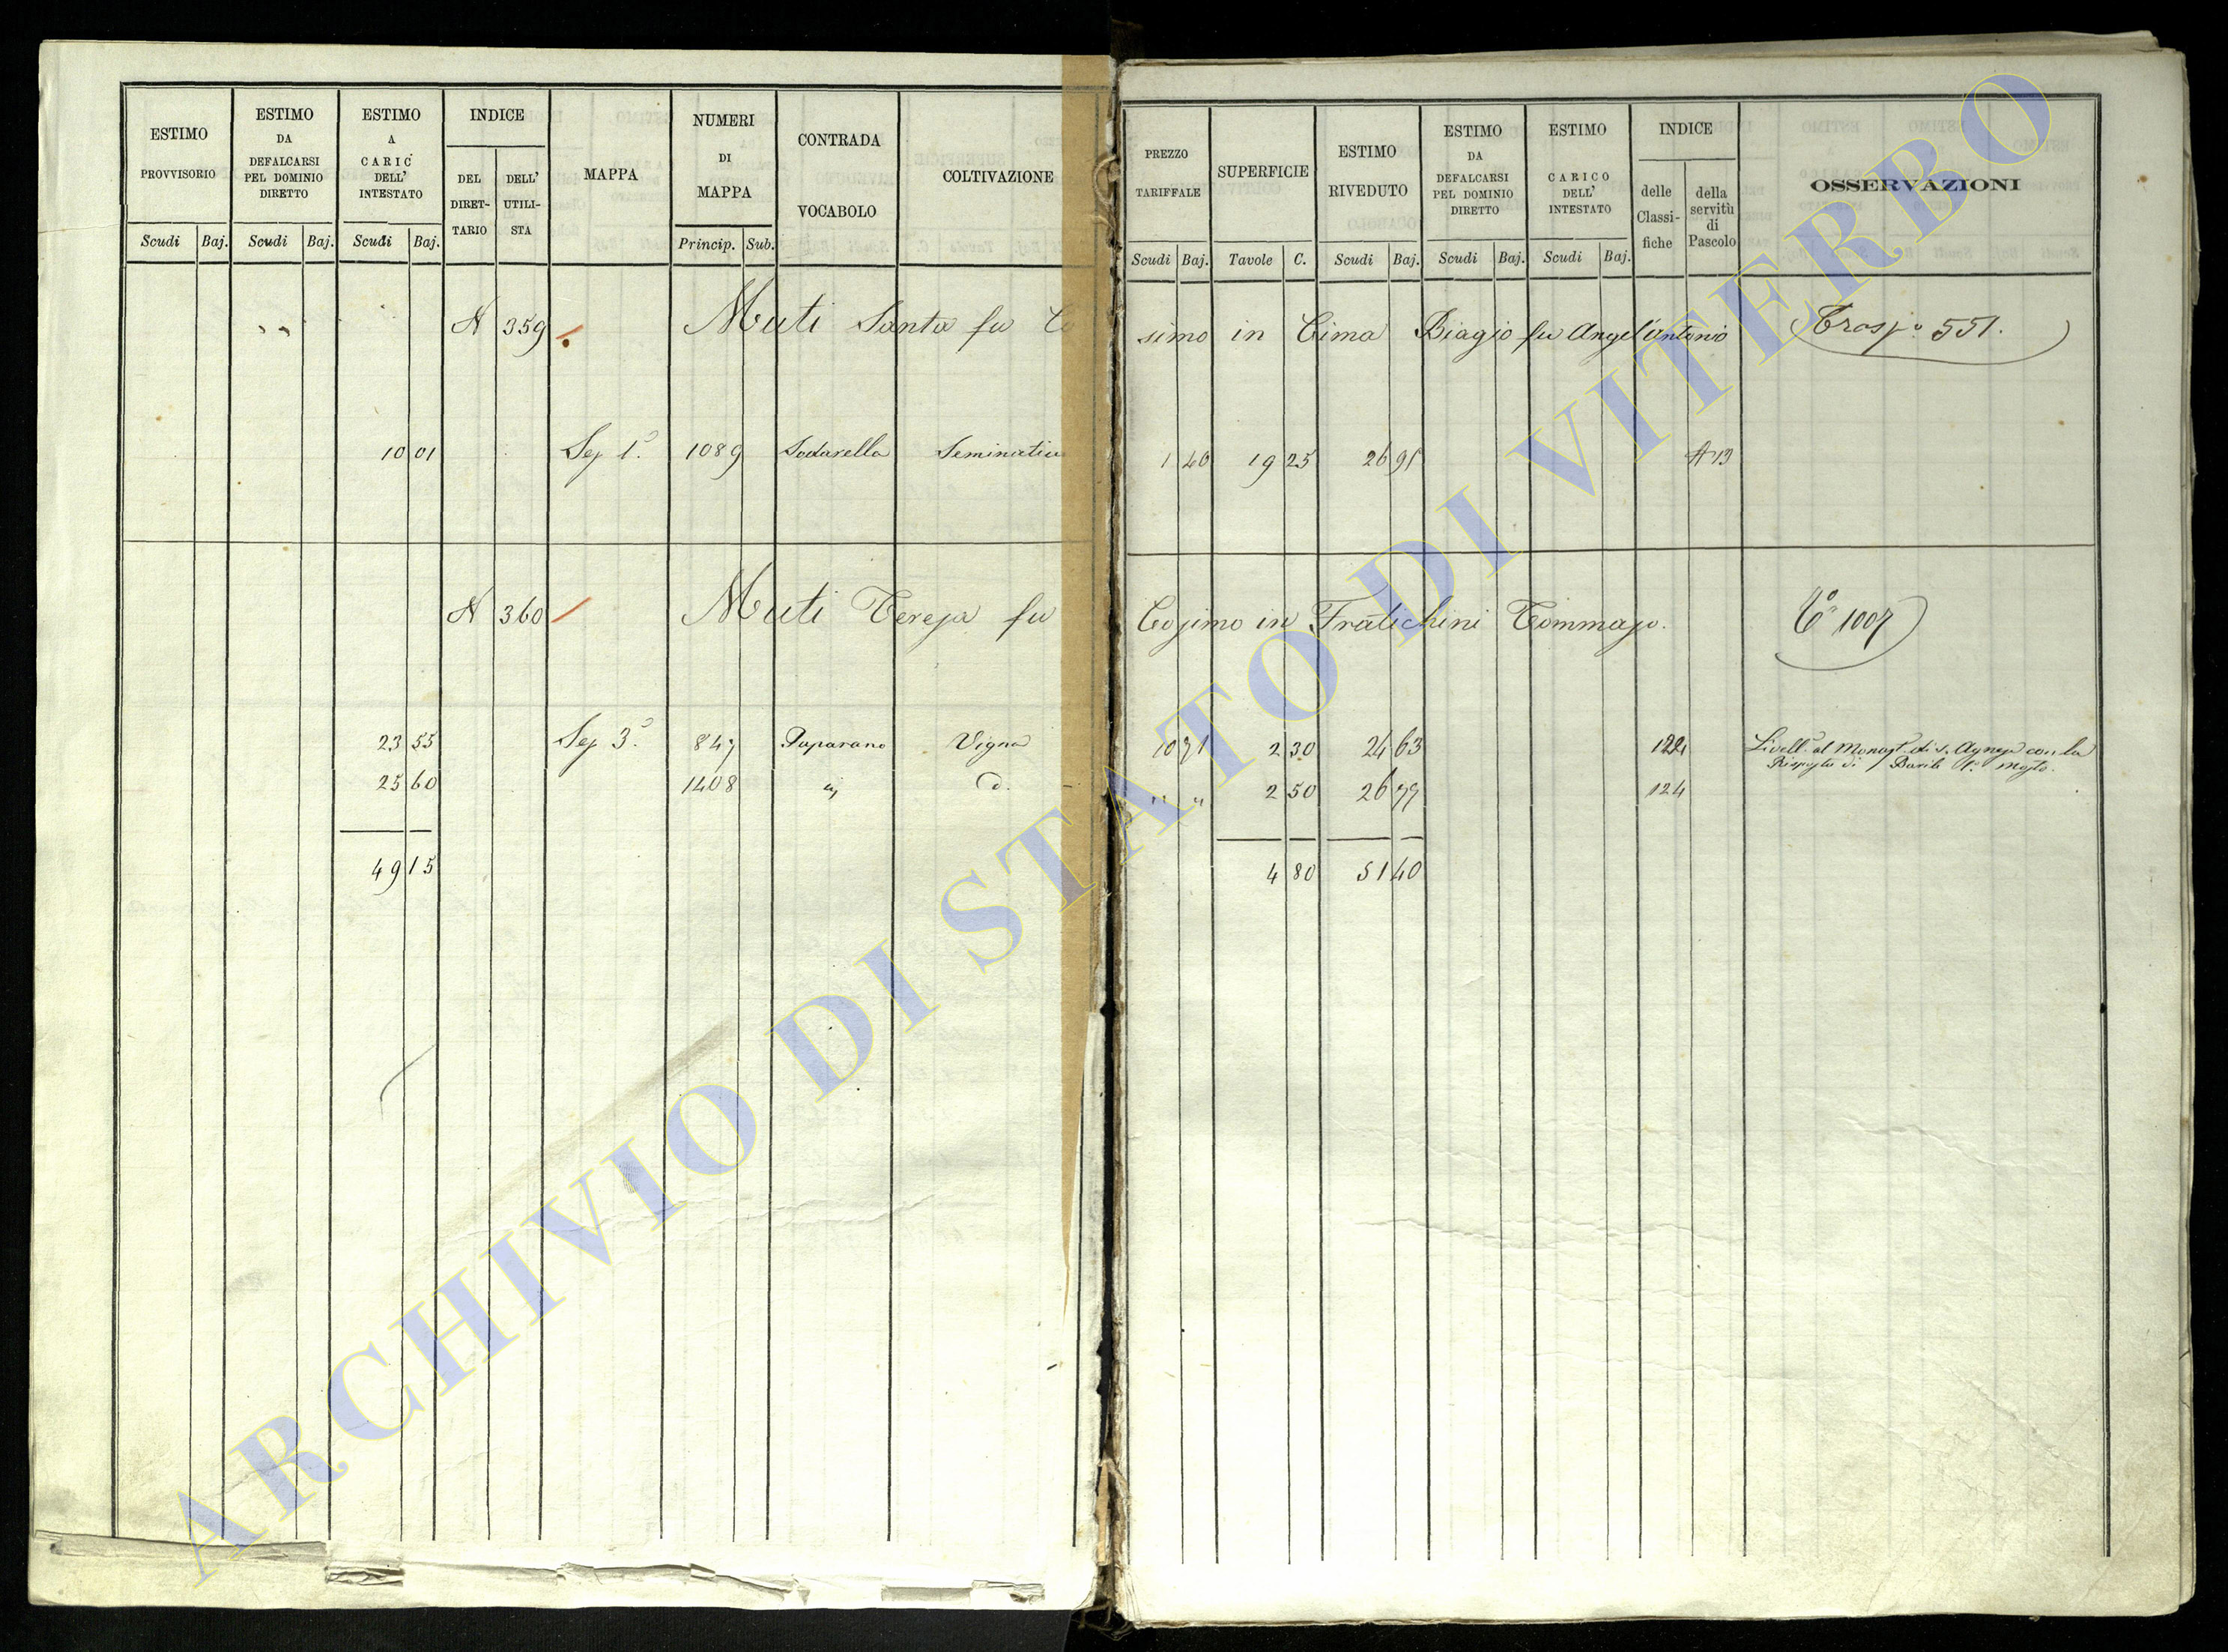 ESTIMO PROVVISORIO
ESTIMO DA DEFALCARSI PEL DOMINIO DIRETTO
ESTIMO A CARIC DELL' INTESTATO
INDICE
DEL DIRET-TARIO
DELL' UTILI-STA
MAPPA
NUMERI DI MAPPA
CONTRADA VOCABOLO
COLTIVAZIONE
Scudi Baj. Scudi Baj. Scudi Baj. Princip. Sub.
PREZZO TARIFFALE
SUPERFICIE
ESTIMO RIVEDUTO
ESTIMO DA DEFALCARSI PEL DOMINIO DIRETTO
ESTIMO CARICO DELL' INTESTATO
INDICE
delle Classi-fiche
della servitù di Pascolo
OSSERVAZIONI
Scudi Baj. Tavole C. Scudi Baj. Scudi Baj. Scudi Baj.
N 359 Muti Santa fu Co simo in Cima Biagio fu Angel'Antonio Trasp.o 551.
10 01 Sez 1.a 1089 Sodarella 1 40 19 25 26 95
N 360 Muti Teresa fu Cosimo in Fratichini Tommaso. 1007
23 55 Sez 3.a 847 Paparano Vigna 10 71 2 30 24 63 Livell.o al Monast. di S. Agnese con la
Risposta di Barile 1. Mosto.
25 60 1408 " d. " " 2 50 26 77 124
49 15 4 80 51 40
ARCHIVIO DI STATO DI VITERBO